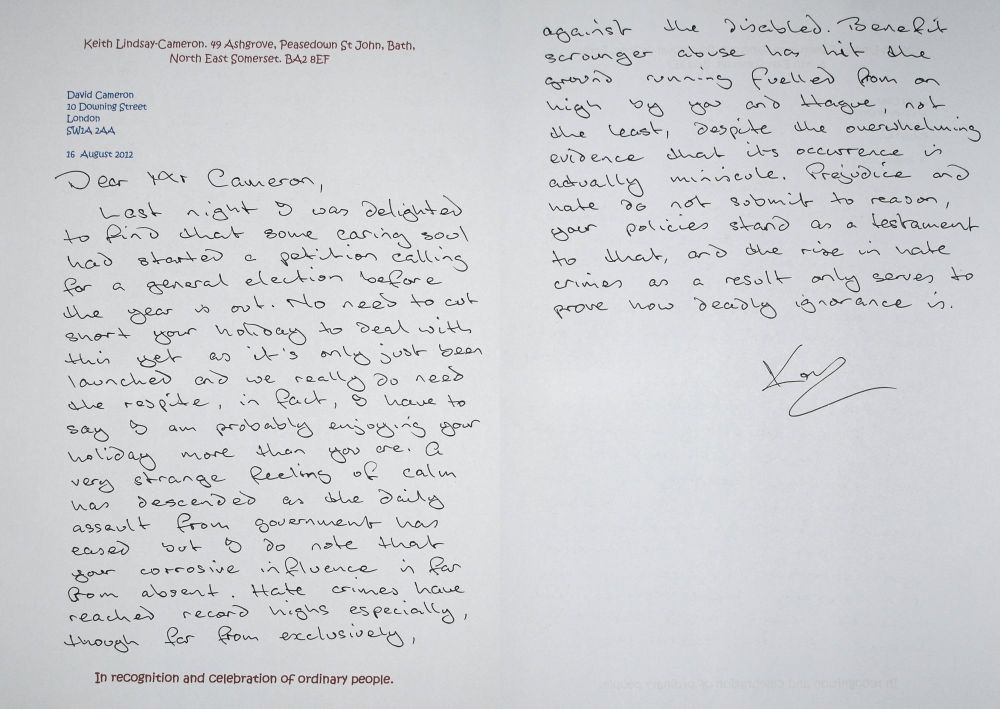 Keith Lindsay-Cameron. 49 Ashgrove, Peasedown St John, Bath,
North East Somerset. BA2 8EF
David Cameron
10 Downing Street
London
SW1A 2AA
16 August 2012
Dear Mr Cameron,
Last night I was delighted
to find that some caring soul
had started a petition calling
for a general election before
the year is out. No need to cut
short your holiday to deal with
this yet as it's only just been
launched and we really do need
the respite, in fact, I have to
say I am probably enjoying your
holiday more than you are. A
very strange feeling of calm
has descended as the daily
assault from government has
eased but I do note that
your corrosive influence is far
from absent. Hate crimes have
reached record highs especially,
though far from exclusively,
In recognition and celebration of ordinary people.
against the disabled. Benefit
scrounger abuse has hit the
ground running fuelled from on
high by you and Hague, not
the least, despite the overwhelming
evidence that its occurrence is
actually miniscule. Prejudice and
hate do not submit to reason,
your policies stand as a testament
to that, and the rise in hate
crimes as a result only serves to
prove how deadly ignorance is.